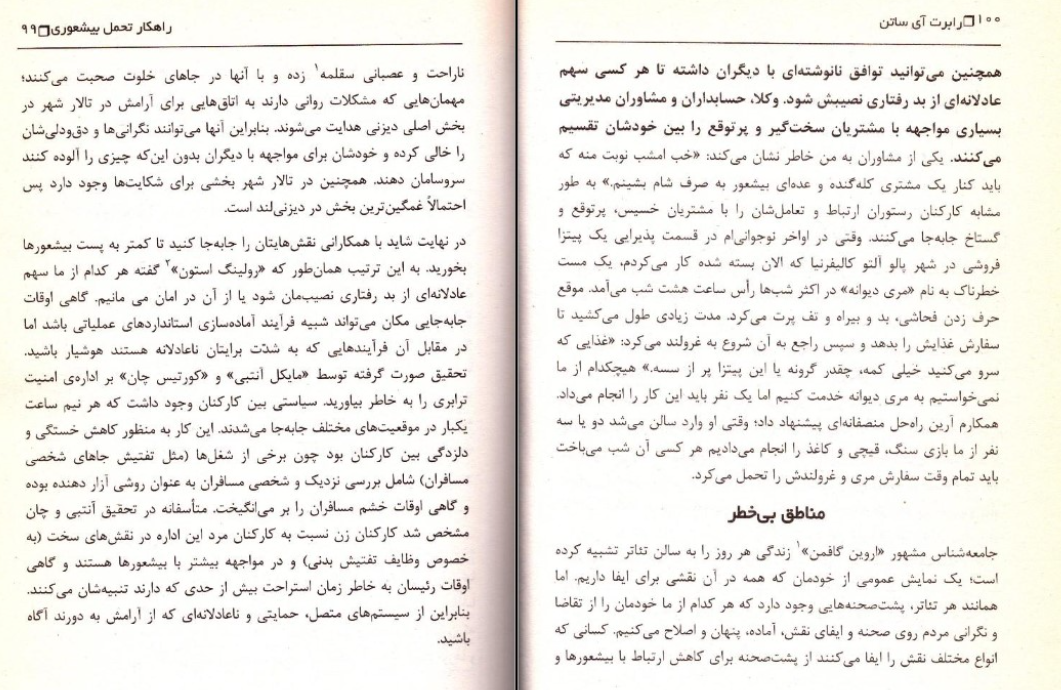 ۱۰۰ ❒ رابرت آی ساتن
همچنین می‌توانید توافق نانوشته‌ای با دیگران داشته تا هر کسی سهم
عادلانه‌ای از بد رفتاری نصیبش شود. وکلا، حسابداران و مشاوران مدیریتی
بسیاری مواجهه با مشتریان سخت‌گیر و پرتوقع را بین خودشان تقسیم
می‌کنند. یکی از مشاوران به من خاطر نشان می‌کند: «خب امشب نوبت منه که
باید کنار یک مشتری کله‌گنده و عده‌ای بیشعور به صرف شام بشینم.» به طور
مشابه کارکنان رستوران ارتباط و تعامل‌شان را با مشتریان خسیس، پرتوقع و
گستاخ جابه‌جا می‌کنند. وقتی در اواخر نوجوانی‌ام در قسمت پذیرایی یک پیتزا
فروشی در شهر پالو آلتو کالیفرنیا که الان بسته شده کار می‌کردم، یک مست
خطرناک به نام «مری دیوانه» در اکثر شب‌ها رأس ساعت هشت شب می‌آمد. موقع
حرف زدن فحاشی، بد و بیراه و تف پرت می‌کرد. مدت زیادی طول می‌کشید تا
سفارش غذایش را بدهد و سپس راجع به آن شروع به غرولند می‌کرد: «غذایی که
سرو می‌کنید خیلی کمه، چقدر گرونه یا این پیتزا پر از سسه.» هیچکدام از ما
نمی‌خواستیم به مری دیوانه خدمت کنیم اما یک نفر باید این کار را انجام می‌داد.
همکارم آرین راه‌حل منصفانه‌ای پیشنهاد داد؛ وقتی او وارد سالن می‌شد دو یا سه
نفر از ما بازی سنگ، قیچی و کاغذ را انجام می‌دادیم هر کسی آن شب می‌باخت
باید تمام وقت سفارش مری و غرولندش را تحمل می‌کرد.
مناطق بی‌خطر
جامعه‌شناس مشهور «اروین گافمن»۱ زندگی هر روز را به سالن تئاتر تشبیه کرده
است؛ یک نمایش عمومی از خودمان که همه در آن نقشی برای ایفا داریم. اما
همانند هر تئاتر، پشت‌صحنه‌هایی وجود دارد که هر کدام از ما خودمان را از تقاضا
و نگرانی مردم روی صحنه و ایفای نقش، آماده، پنهان و اصلاح می‌کنیم. کسانی که
انواع مختلف نقش را ایفا می‌کنند از پشت‌صحنه برای کاهش ارتباط با بیشعورها و
راهکار تحمل بیشعوری ❒ ۹۹
ناراحت و عصبانی سقلمه۱ زده و با آنها در جاهای خلوت صحبت می‌کنند؛
مهمان‌هایی که مشکلات روانی دارند به اتاق‌هایی برای آرامش در تالار شهر در
بخش اصلی دیزنی هدایت می‌شوند. بنابراین آنها می‌توانند نگرانی‌ها و دق‌ودلی‌شان
را خالی کرده و خودشان برای مواجهه با دیگران بدون این‌که چیزی را آلوده کنند
سروسامان دهند. همچنین در تالار شهر بخشی برای شکایت‌ها وجود دارد پس
احتمالاً غمگین‌ترین بخش در دیزنی‌لند است.
در نهایت شاید با همکارانی نقش‌هایتان را جابه‌جا کنید تا کمتر به پست بیشعورها
بخورید. به این ترتیب همان‌طور که «رولینگ استون»۲ گفته هر کدام از ما سهم
عادلانه‌ای از بد رفتاری نصیب‌مان شود یا از آن در امان می مانیم. گاهی اوقات
جابه‌جایی مکان می‌تواند شبیه فرآیند آماده‌سازی استانداردهای عملیاتی باشد اما
در مقابل آن فرآیندهایی که به شدّت برایتان ناعادلانه هستند هوشیار باشید.
تحقیق صورت گرفته توسط «مایکل آنتبی» و «کورتیس چان» بر اداره‌ی امنیت
ترابری را به خاطر بیاورید. سیاستی بین کارکنان وجود داشت که هر نیم ساعت
یکبار در موقعیت‌های مختلف جابه‌جا می‌شدند. این کار به منظور کاهش خستگی و
دلزدگی بین کارکنان بود چون برخی از شغل‌ها (مثل تفتیش جاهای شخصی
مسافران) شامل بررسی نزدیک و شخصی مسافران به عنوان روشی آزار دهنده بوده
و گاهی اوقات خشم مسافران را بر می‌انگیخت. متأسفانه در تحقیق آنتبی و چان
مشخص شد کارکنان زن نسبت به کارکنان مرد این اداره در نقش‌های سخت (به
خصوص وظایف تفتیش بدنی) و در مواجهه بیشتر با بیشعورها هستند و گاهی
اوقات رئیسان به خاطر زمان استراحت بیش از حدی که دارند تنبیه‌شان می‌کنند.
بنابراین از سیستم‌های متصل، حمایتی و ناعادلانه‌ای که از آرامش به دورند آگاه
باشید.